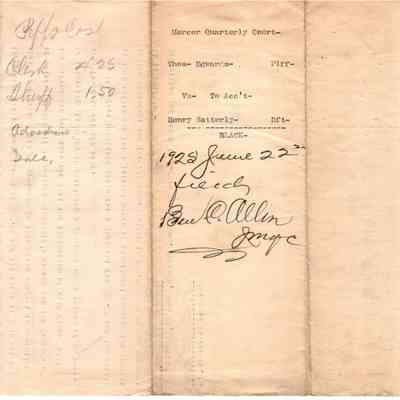 Plffs Cost
Clerk 4.25
Sheriff 1.50
Advertising
Sale,
Mercer Quarterly Court-
Thos- Edwards- . Plff-
Vs- To Acc't-
Henry Satterly- Dft-
BLACK-
1922 June 22nd
filed
Ben C. Allin
JMQC